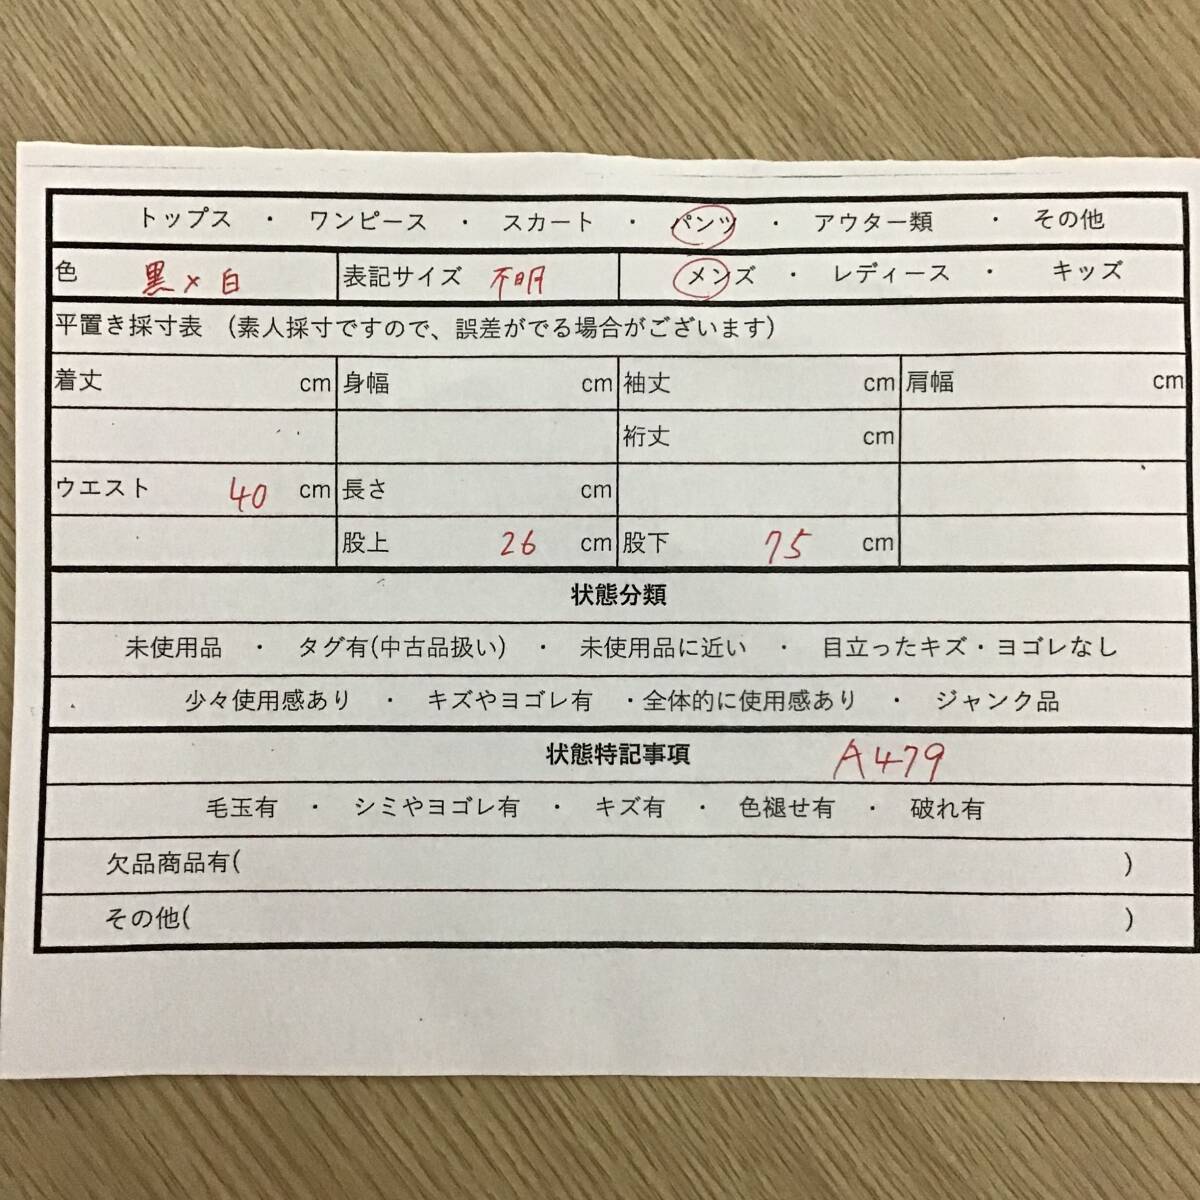 トップス ・ ワンピース ・ スカート ・ パンツ ・ アウター類 ・ その他
色 黒×白 表記サイズ 不明 メンズ ・ レディース ・ キッズ
平置き採寸表 (素人採寸ですので、誤差がでる場合がございます)
着丈 cm 身幅 cm 袖丈 cm 肩幅 cm
裄丈 cm
ウエスト 40 cm 長さ cm
股上 26 cm 股下 75 cm
状態分類
未使用品 ・ タグ有(中古品扱い) ・ 未使用品に近い ・ 目立ったキズ・ヨゴレなし
少々使用感あり ・ キズやヨゴレ有 ・全体的に使用感あり ・ ジャンク品
状態特記事項 A479
毛玉有 ・ シミやヨゴレ有 ・ キズ有 ・ 色褪せ有 ・ 破れ有
欠品商品有( )
その他( )